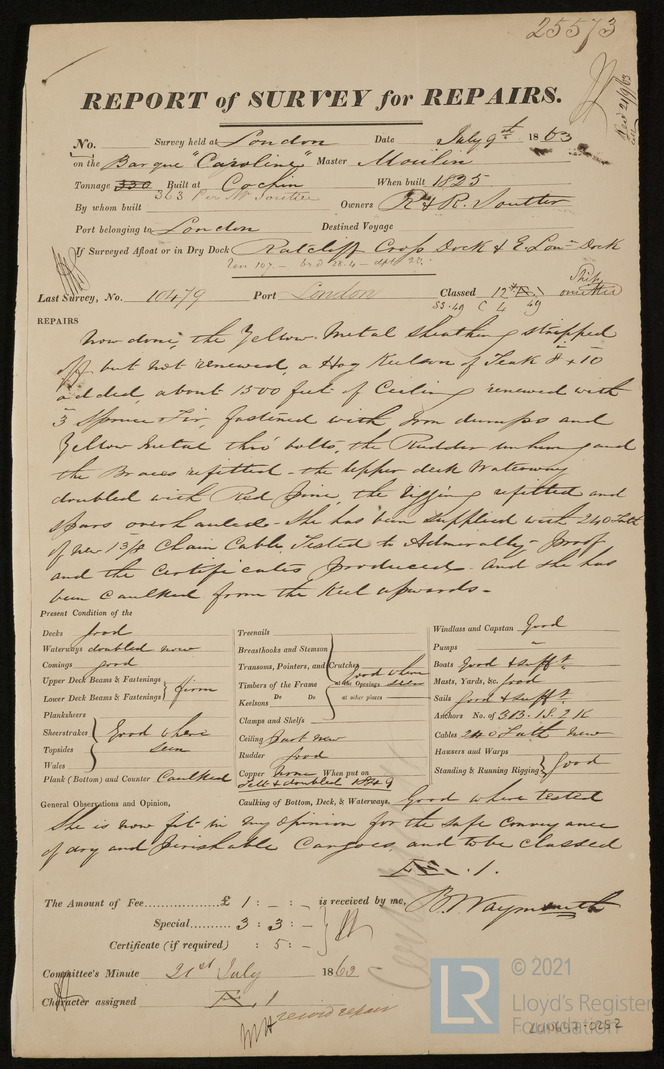 25573
REPORT of SURVEY for REPAIRS.
Recd 21/9/63
No. Survey held at London Date July 9th 1863
on the Barque "Caroline" Master Moulin
Tonnage 330 Built at Cochin When built 1825
363 Per Mr Soutter
By whom built Owners R & R. Soutter
Port belonging to London Destined Voyage
If Surveyed Afloat or in Dry Dock Ratcliff Cross Dock & E. Lon. Dock
Len 107. - brd 28.4 - dpt 22.
Last Survey, No. 10479 Port London Classed 12
REPAIRS
Now done, the Yellow Metal Sheathing stripped
off but not renewed, a Hog Keelson of Teak 8 x 10
added, about 1500 feet of Ceiling renewed with
3 Spruce Fir, fastened with Iron dumps and
Yellow Metal thro' bolts, the Rudder unhung and
the Braces refitted - the upper deck Waterway
doubled with Red Pine, the rigging refitted and
spars overhauled - She has been supplied with 240 Fath
of new 1 3/8 Chain Cable Tested to Admiralty proof
and the Certificates produced. and she has
been Caulked from the Keel upwards -
Present Condition of the
Decks good
Waterways doubled new
Comings good
Upper Deck Beams & Fastenings
Lower Deck Beams & Fastenings } firm
Planksheers
Sheerstrakes
Topsides
Wales } Good where seen
Plank (Bottom) and Counter Caulked
Treenails
Breasthooks and Stemson
Transoms, Pointers, and Crutches
Timbers of the Frame at the Openings
Do Do at other places
Keelsons
Clamps and Shelfs
} Good where seen
Ceiling Part new
Rudder good
Copper None When put on
Felt & doubled 1849
Windlass and Capstan Good
Pumps "
Boats Good & sufft.
Masts, Yards, &c. Good
Sails Good & sufft.
Anchors No. of 3 B. 1 S. 2 K
Cables 240 Fath new
Hawsers and Warps
Standing & Running Rigging } Good
General Observations and Opinion, Caulking of Bottom, Deck, & Waterways, Good where tested
She is now fit in my opinion for the safe conveyance
of dry and perishable Cargoes, and to be classed
Æ. 1.
The Amount of Fee £ 1 : - : - is received by me,
B. Waymouth
Special 3 : 3 : -
Certificate (if required) : 5 : -
Committee's Minute 21st July 1863
Character assigned Æ. 1
record repair
© 2021
Lloyd's Register
Foundation